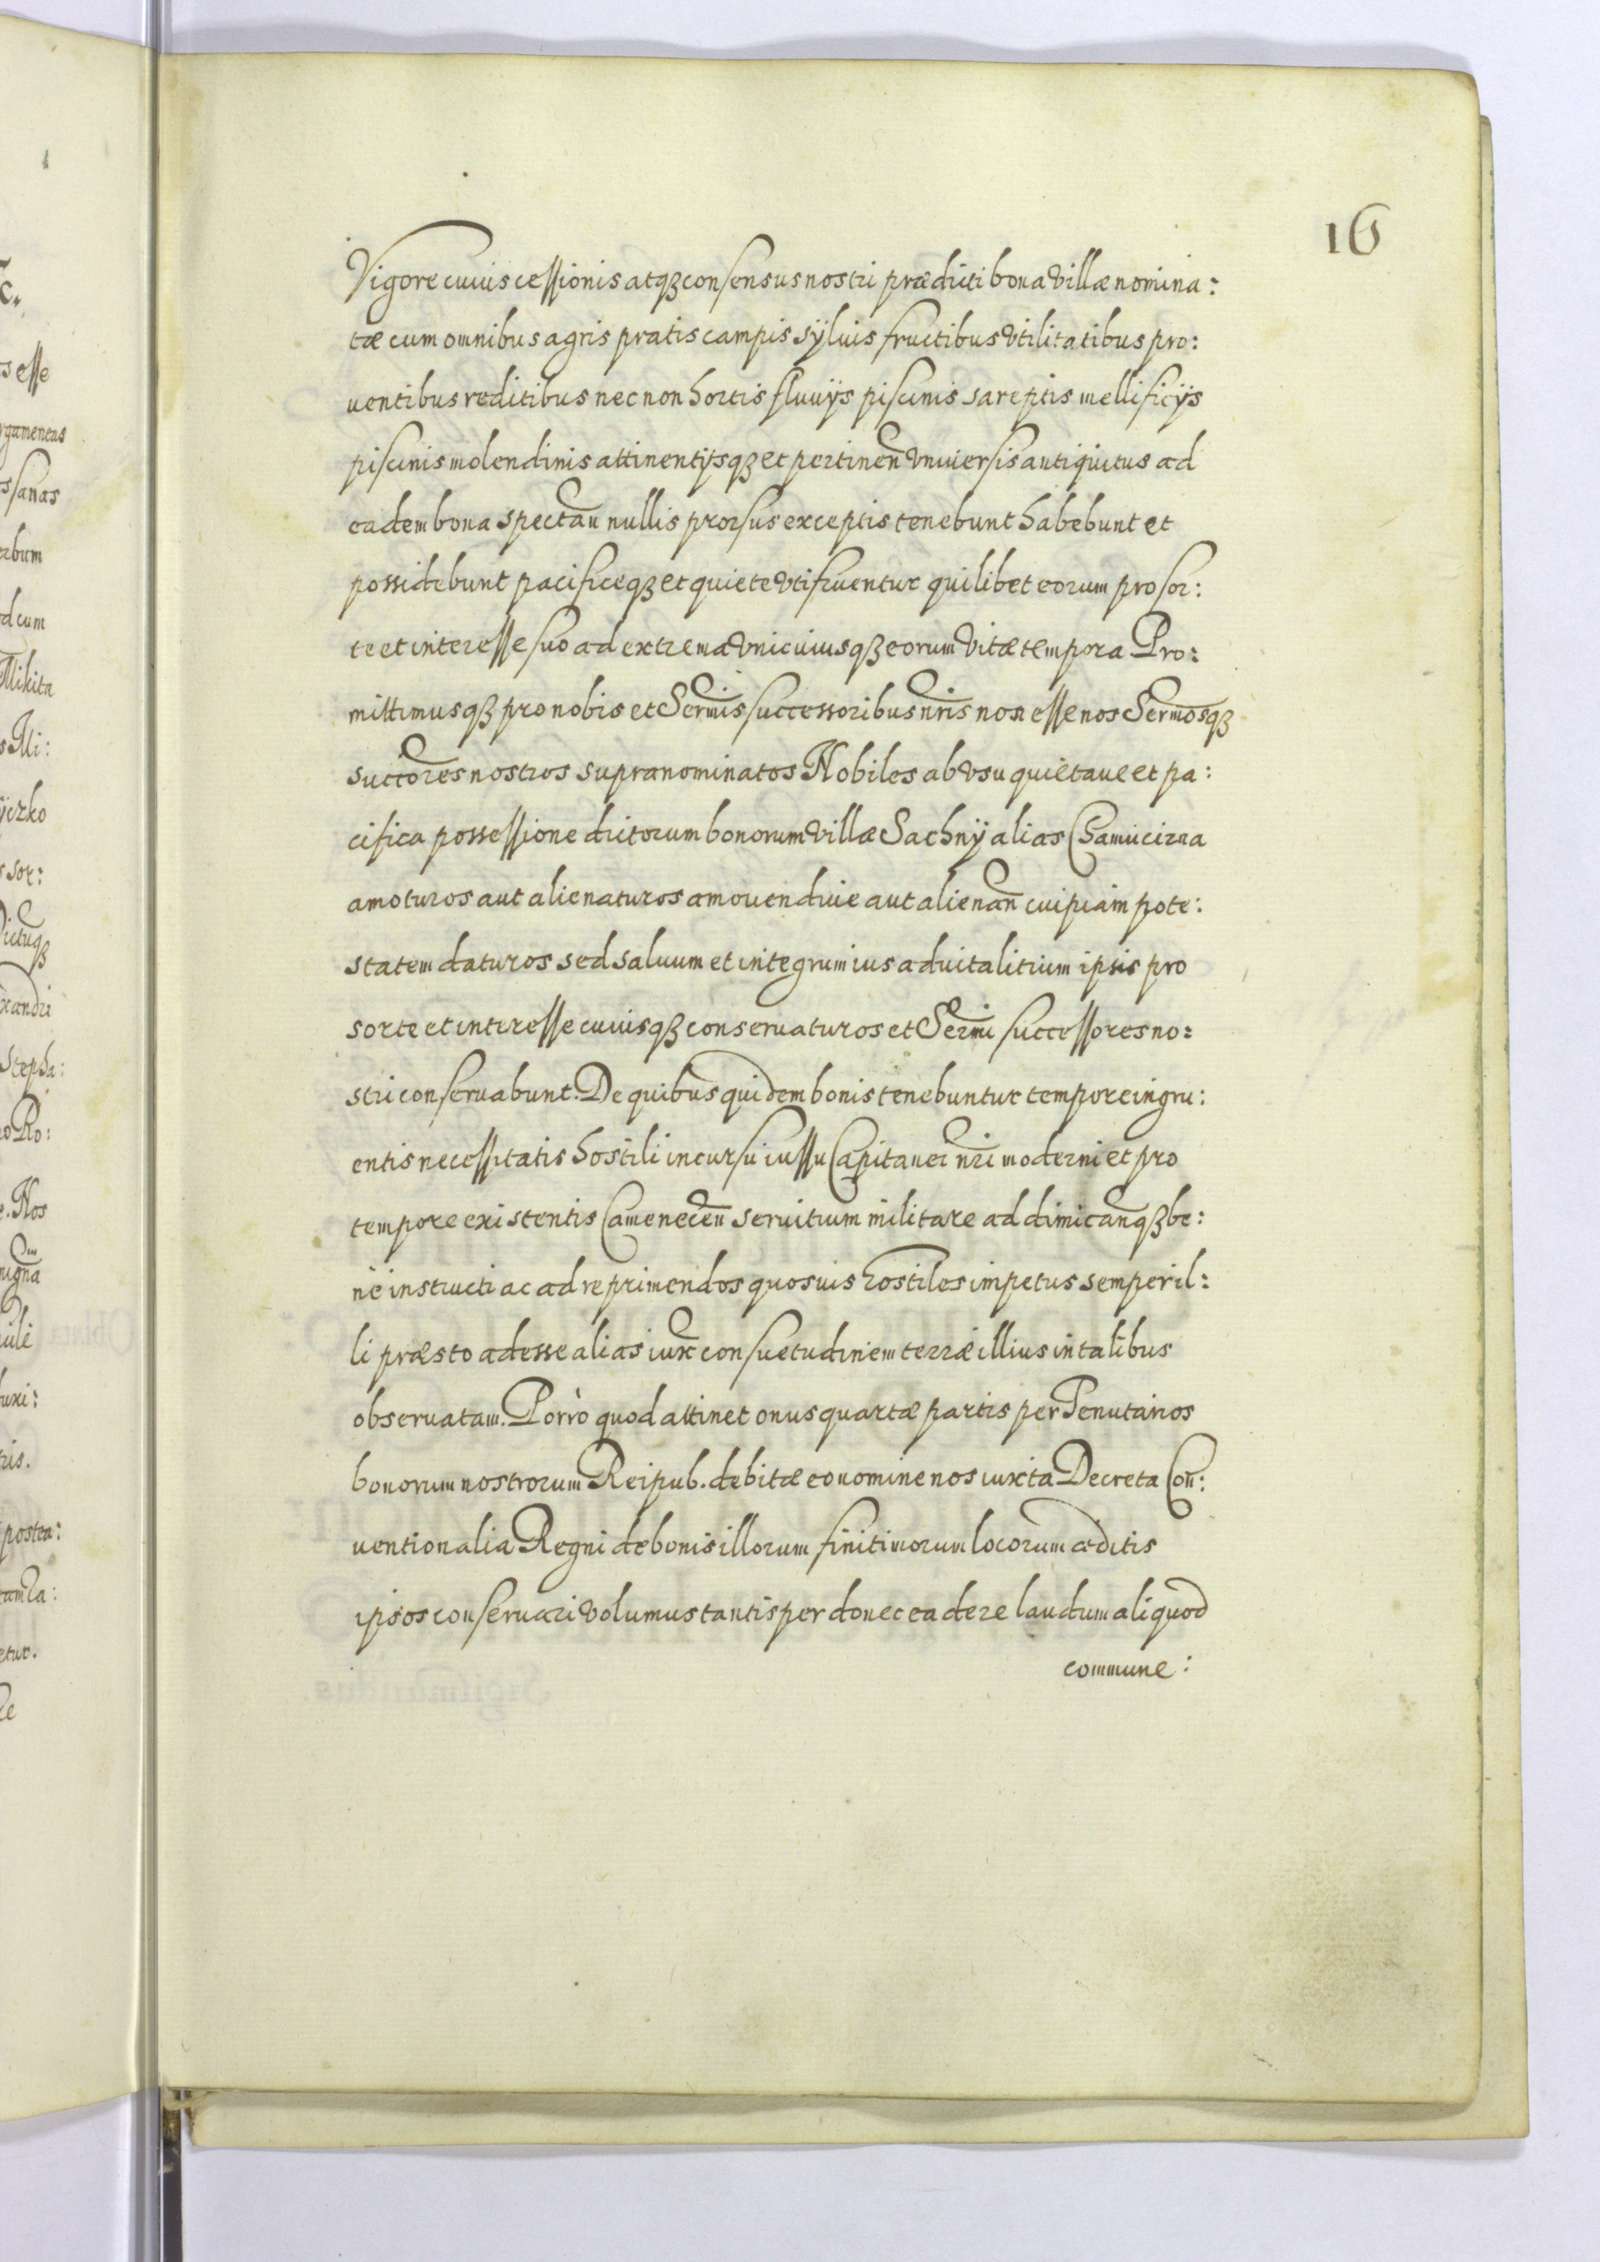 16
Vigore cuius cessionis atqꝫ consensus nostri prædicti bona villæ nomina:
tæ cum omnibus agris pratis campis sÿluis fructibus vtilitatibus pro:
uentibus reditibus nec non hortis fluuijs piscinis sareptis mellificijs
piscinis molendinis attinentijsqꝫ et pertinen̄ vniuersis antiquitus ad
eadem bona spectan̄ nullis prorsus exceptis tenebunt habebunt et
possidebunt pacificeqꝫ et quiete vtifruentur quilibet eorum pro sor:
te et interesse suo ad extrema vnicuiusqꝫ eorum vitæ tempora Pro:
mittimusqꝫ pro nobis et Sermis successoribus nris non esse nos Sermosqꝫ
succores nostros supranominatos Nobiles ab vsu quieta ue et pa:
cifica possessione dictorum bonorum villæ Sachnÿ alias
amoturos aut alienaturos amouendi uie aut alienan̄ cuipiam pote:
statem daturos sed saluum et integrum ius aduitalitium ipsis pro
sorte et interesse cuiusqꝫ conseruaturos et Sermi successores no:
stri conseruabunt. De quibus quidem bonis tenebuntur tempore ingru:
entis necessitatis hostili incursu iussu Capitanei nri moderni et pro
tempore existentis Camenecen̄ seruitium militare ad dimican̄qꝫ be:
ne instructi ac ad reprimendos quosuis hostiles impetus semper il:
li præsto adesse alias iux̄ consuetudinem terræ illius in talibus
obseruatam. Porrò quod attinet onus quartæ partis per Tenutarios
bonorum nostrorum Reipub. debitæ eo nomine nos iuxta Decreta Con:
uentionalia Regni de bonis illorum finitimorum locorum ædita
ipsos conseruari volumus tantisper donec ea de re laudum aliquod
commune:
esse
rgamentas
sanas
rbum
d cum
Mikita
Mi:
ÿczko
sor:
ictuqꝫ
xandri
Stepha:
Ro:
Nos
uli
uxi:
ris.
postea:
etur.